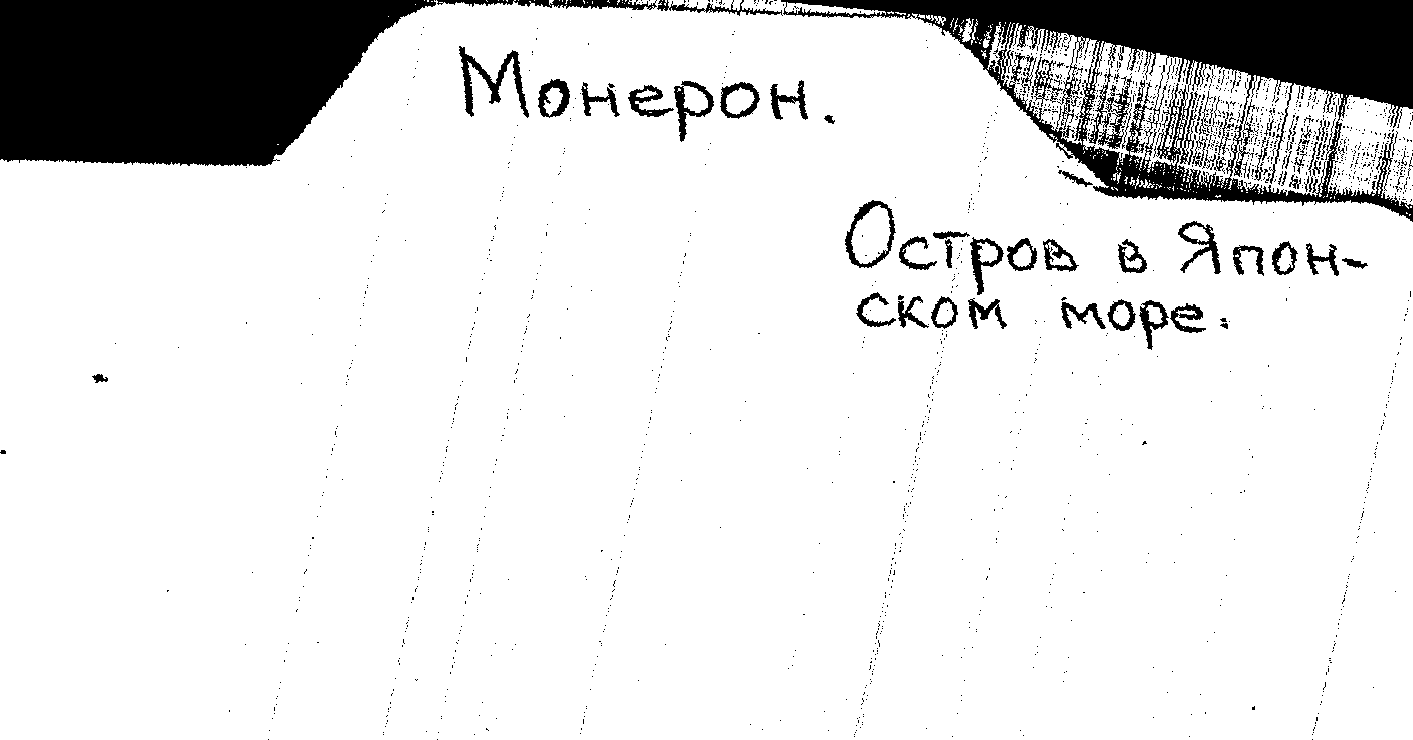 Монерон.
Остров в Япон-
ском море.